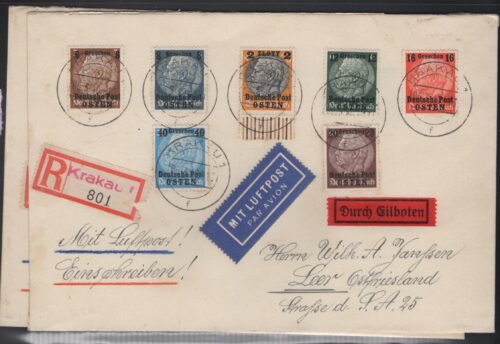 6 Groschen 6
Deutsche Post
OSTEN
Groschen
Deutsche Post
OSTEN
2 ZLOTY 2
Deutsche Post
OSTEN
12 Groschen 12
Deutsche Post
OSTEN
16 Groschen 16
Deutsche Post
OSTEN
KRAKAU 1
40 40
Deutsche Post
OSTEN
KRAKAU 1
Deutsche Post
OSTEN
R Krakau 1
801
MIT LUFTPOST
PAR AVION
Durch Eilboten
Mit Luftpost!
Einschreiben!
Herrn Wilh. A. Janssen
Leer Ostfriesland
Straße d. S.A. 25